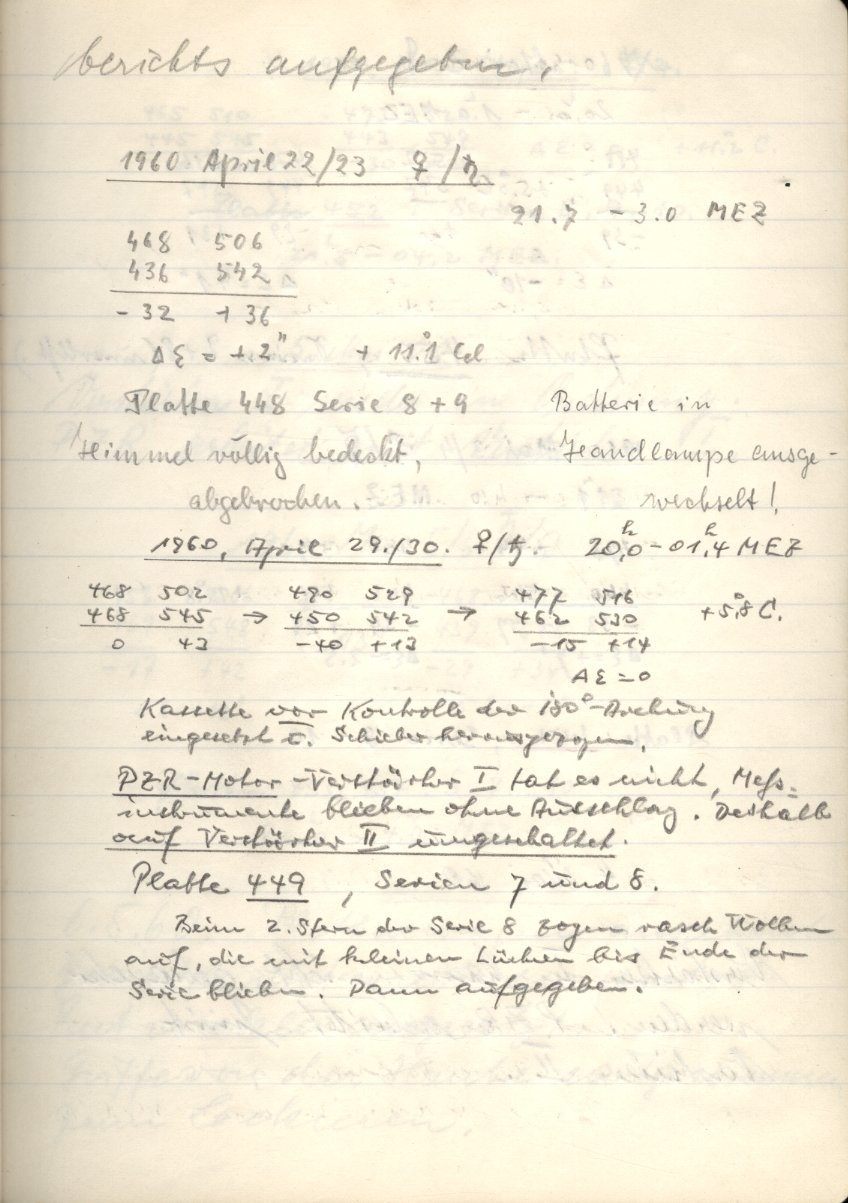 berichts aufgegeben.
1960 April 22/23 ♀/♄
21.7 - 3.0 MEZ
468 506
436 542
- 32 + 36
Δε = + 2" + 11.°1 Cel
Platte 448 Serie 8 + 9 Batterie in
Himmel völlig bedeckt, Handlampe ausge-
abgebrochen. wechselt!
1960, April 29./30. ♀/♄. 20,ʰ0 - 01,ʰ4 MEZ
468 502 490 529 477 516
468 545 → 450 542 → 462 530 + 5,°8 C.
0 43 -40 +13 -15 +14
Δε = 0
Kassette vor Kontrolle der 180°-Drehung
eingesetzt u. Schieber herausgezogen.
PZR-Motor-Verstärker I tat es nicht, Mess-
instrumente blieben ohne Ausschlag. Deshalb
auf Verstärker II umgeschaltet.
Platte 449, Serien 7 und 8.
Beim 2. Stern der Serie 8 zogen rasch Wolken
auf, die mit kleinen Lücken bis Ende der
Serie blieben. Dann aufgegeben.